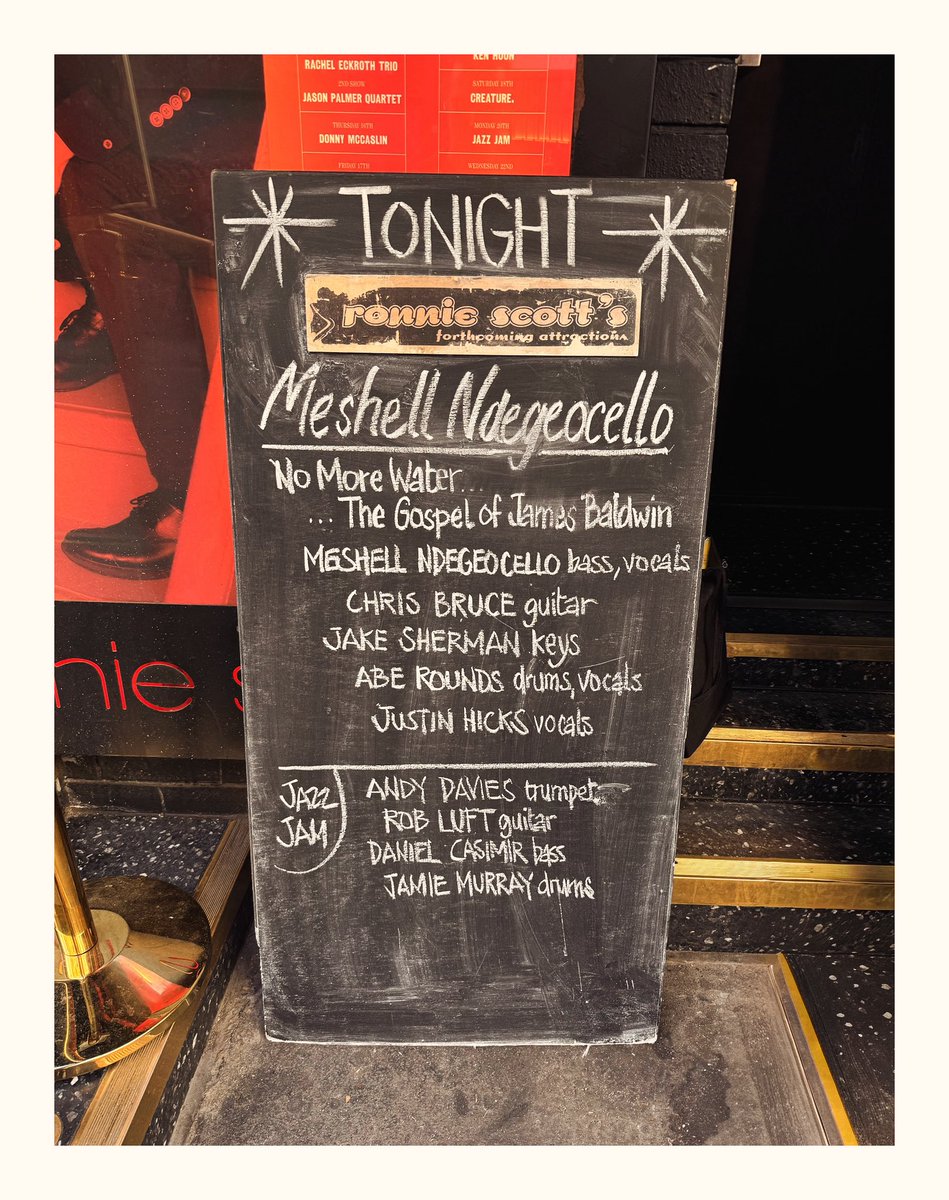 RACHEL ECKROTH TRIO
2ND SHOW
JASON PALMER QUARTET
THURSDAY 16TH
DONNY MCCASLIN
FRIDAY 17TH
KEN
SATURDAY 18TH
CREATURE.
MONDAY 20TH
JAZZ JAM
WEDNESDAY 22ND
TONIGHT
ronnie scott's
forthcoming attractions
Meshell Ndegeocello
No More Water...
... The Gospel of James Baldwin
MESHELL NDEGEOCELLO bass, vocals
CHRIS BRUCE guitar
JAKE SHERMAN keys
ABE ROUNDS drums, vocals
JUSTIN HICKS vocals
JAZZ
JAM
ANDY DAVIES trumpet
ROB LUFT guitar
DANIEL CASIMIR bass
JAMIE MURRAY drums
nie s